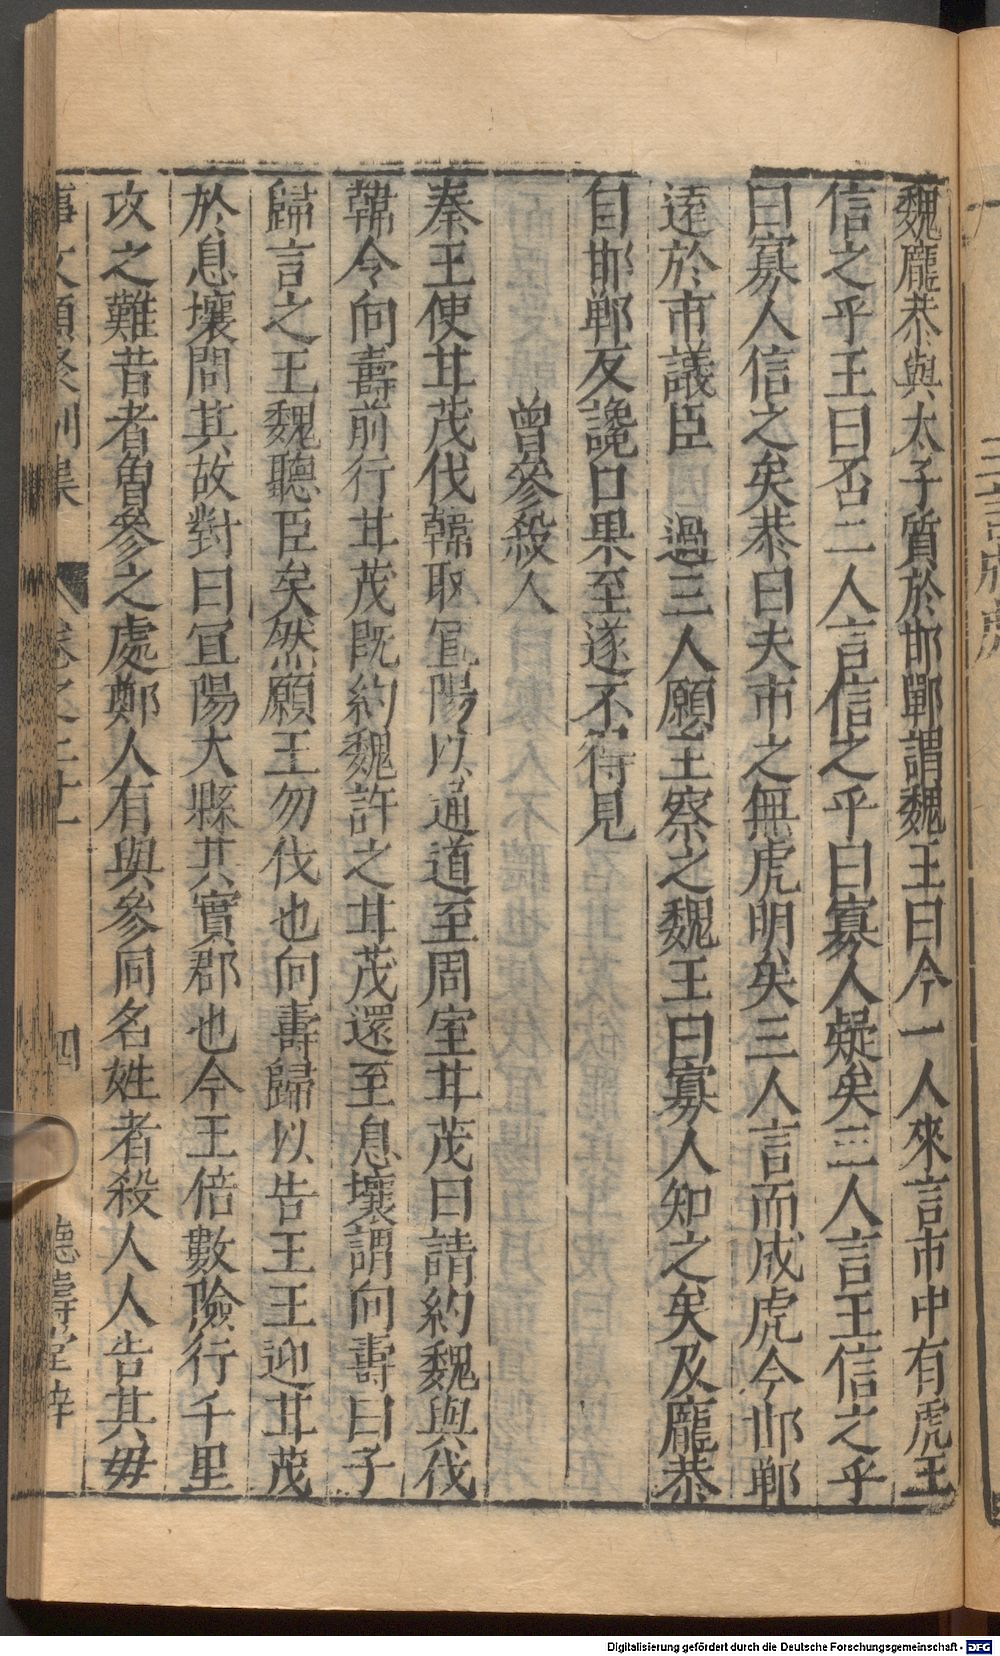 魏龐恭與太子質於邯鄲謂魏王曰今一人來言市中有虎王
信之乎王曰否二人言信之乎曰寡人疑矣三人言王信之乎
曰寡人信之矣恭曰夫市之無虎明矣三人言而成虎今邯鄲
遠於市議臣 過三人願王察之魏王曰寡人知之矣及龐恭
自邯鄲反讒口果至遂不得見
曾參殺人
秦王使甘茂伐韓取冝陽以通道至周室甘茂曰請約魏與伐
韓令向壽前行甘茂既約魏許之甘茂還至息壤謂向壽曰子
歸言之王魏聽臣矣然願王勿伐也向壽歸以告王王迎甘茂
於息壤問其故對曰冝陽大縣其實郡也今王倍數險行千里
攻之難昔者魯參之處鄭人有與參同名姓者殺人人告其毋
事文類聚別集 卷之二十 四 德壽堂梓
Digitalisierung gefördert durch die Deutsche Forschungsgemeinschaft - DFG